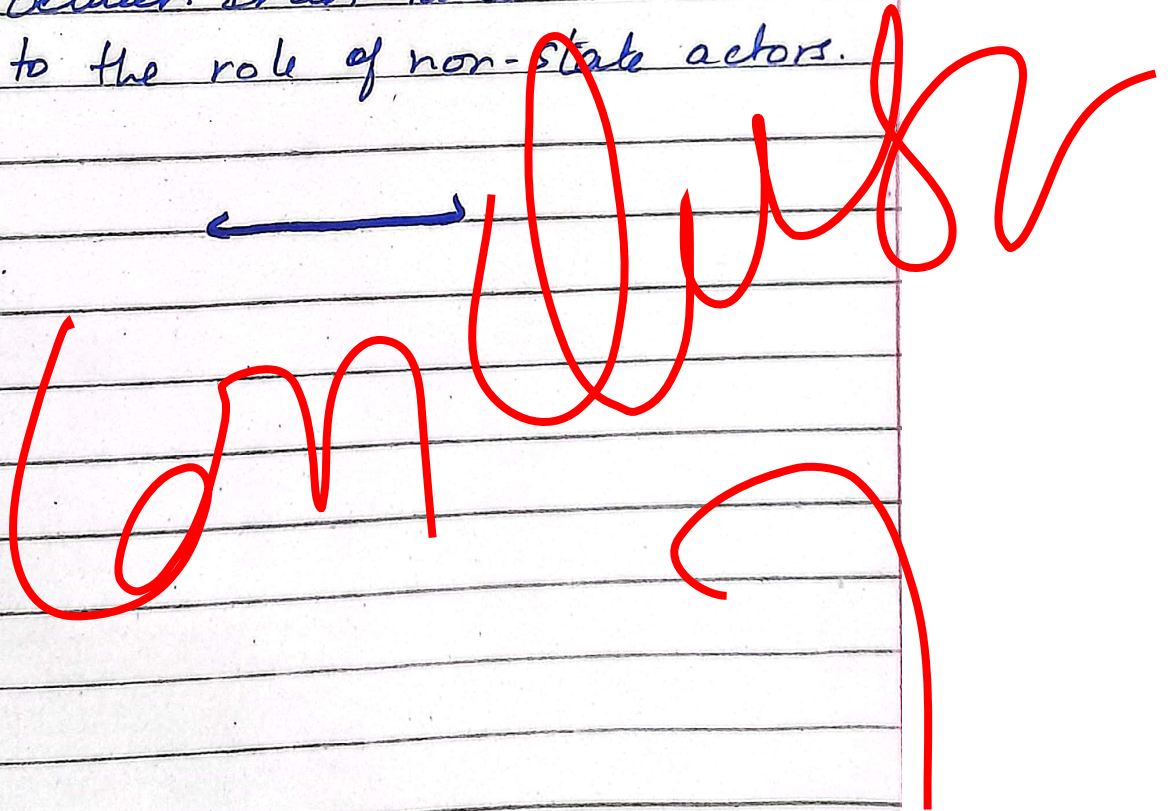 to the role of non-state actors.
Conclusn
?